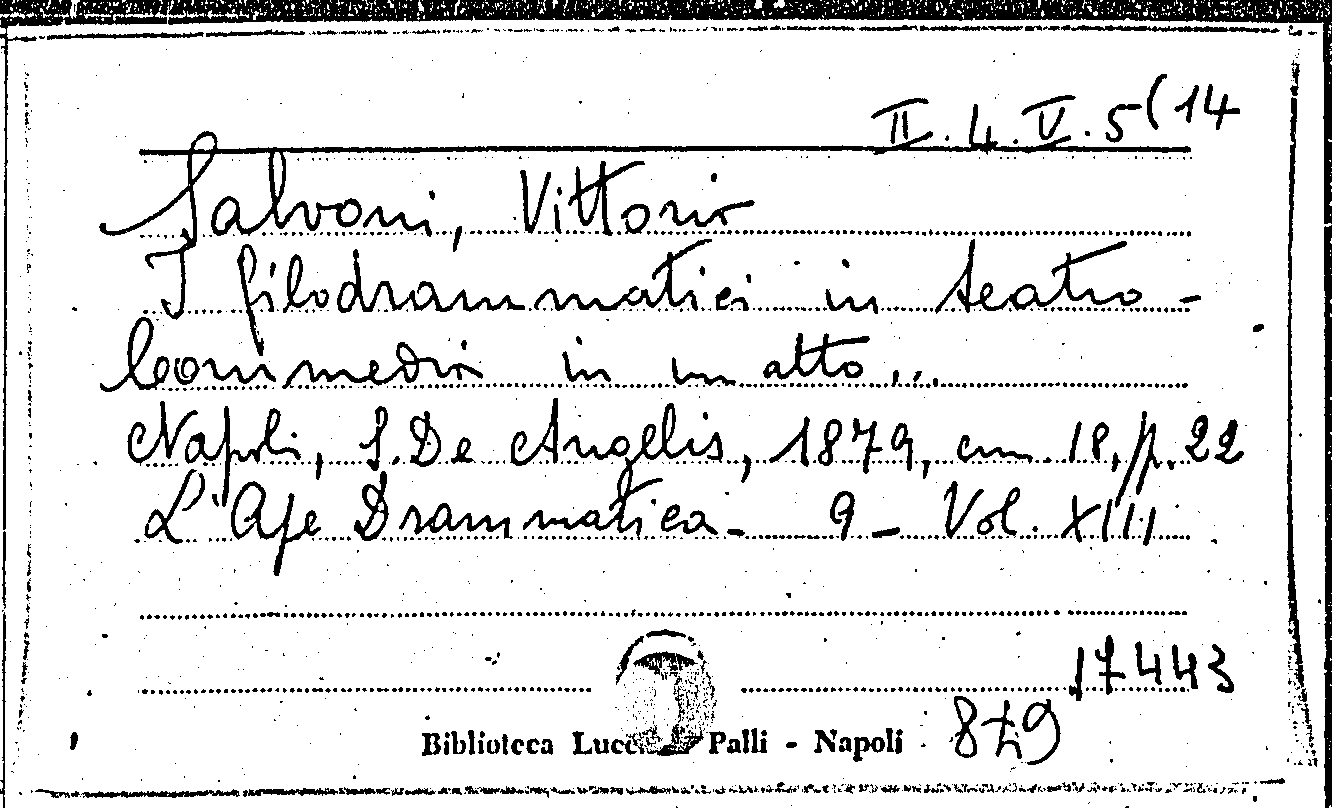 II. 4. V. 5(14
Salvoni, Vittorio
I filodrammatici in teatro -
Commedia in un atto...
Napoli, S. De Angelis, 1879, cm. 18, p. 22
L'Ape Drammatica - 9 - Vol. XIII
17443
Biblioteca Lucc Palli - Napoli
879